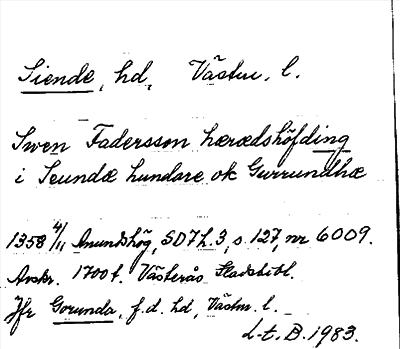 Siende, hd, Västm. l.
Swen Fadersson hærædshöfding
i Seundæ hundare ok Gurrundhæ
1358 4/11 Anundshög, SD7h.3, s. 127, nr 6009.
Avskr. 1700t. Västerås Stadsbibl.
Jfr Gorunda, f.d. hd, Västm. l.
L-t. B. 1983.